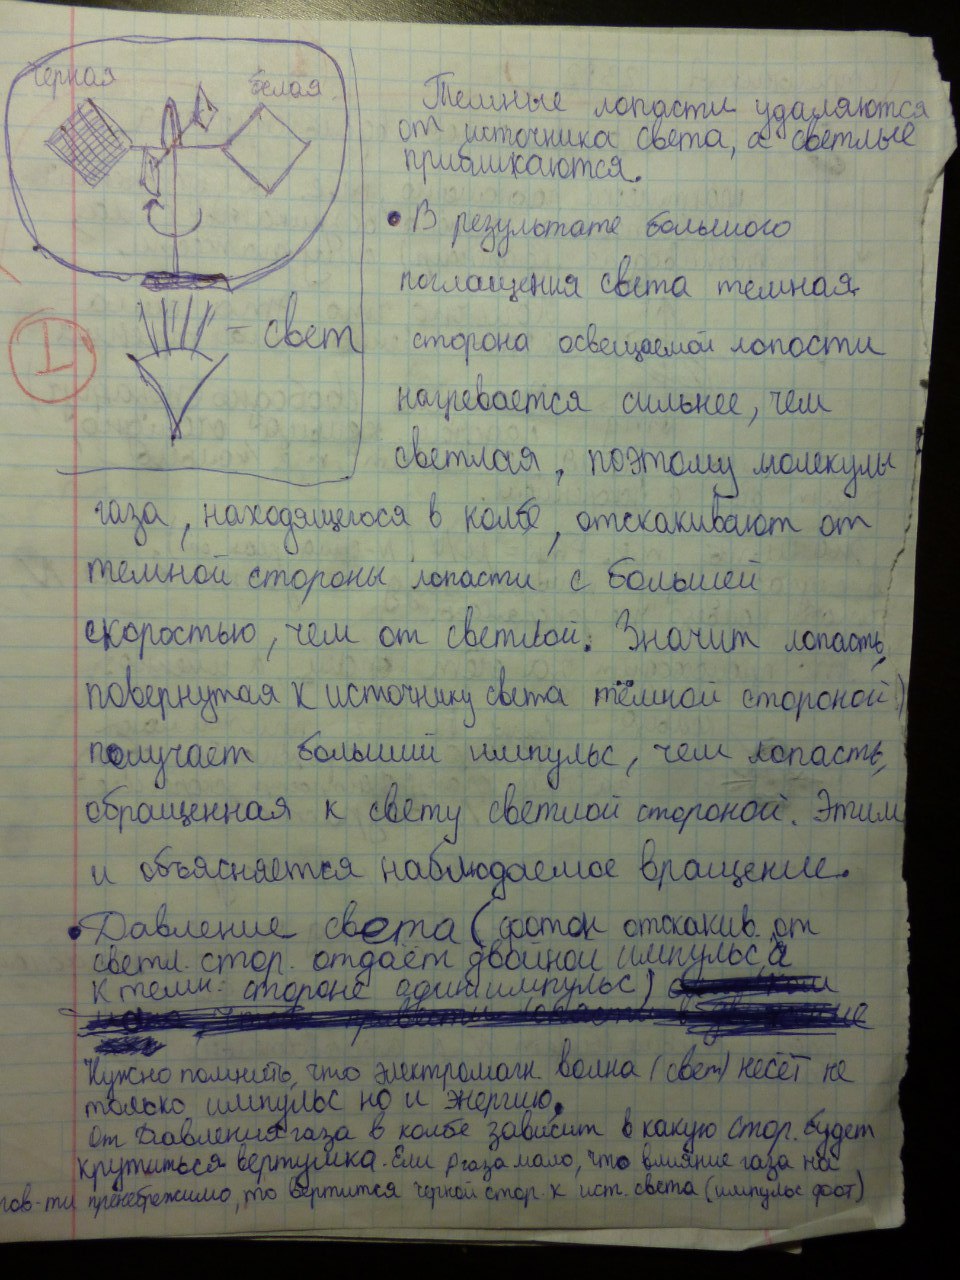 черная
белая
свет
I
Темные лопасти удаляются
от источника света, а светлые
приближаются.
• В результате большого
поглащения света темная
сторона освещаемой лопости
нагревается сильнее, чем
светлая, поэтому молекулы
газа, находящегося в колбе, отскакивают от
темной стороны лопасти с большей
скоростью, чем от светлой. Значит лопасть,
повернутая к источнику света тёмной стороной)
получает больший импульс, чем лопасть,
обращенная к свету светлой стороной. Этим
и объясняется наблюдаемое вращение.
• Давление света (фотон отскакив. от
светл. стор. отдаёт двойной импульс а
к темн. стороне один импульс)
Нужно помнить, что электромагн. волна (свет) несёт не
только импульс но и энергию.
От давления газа в колбе зависит в какую стор. будет
крутиться вертушка. Если p газа мало, что влияние газа на
пов-ти пренебрежимо, то вертится черной стор. к ист. света (импульс фот)